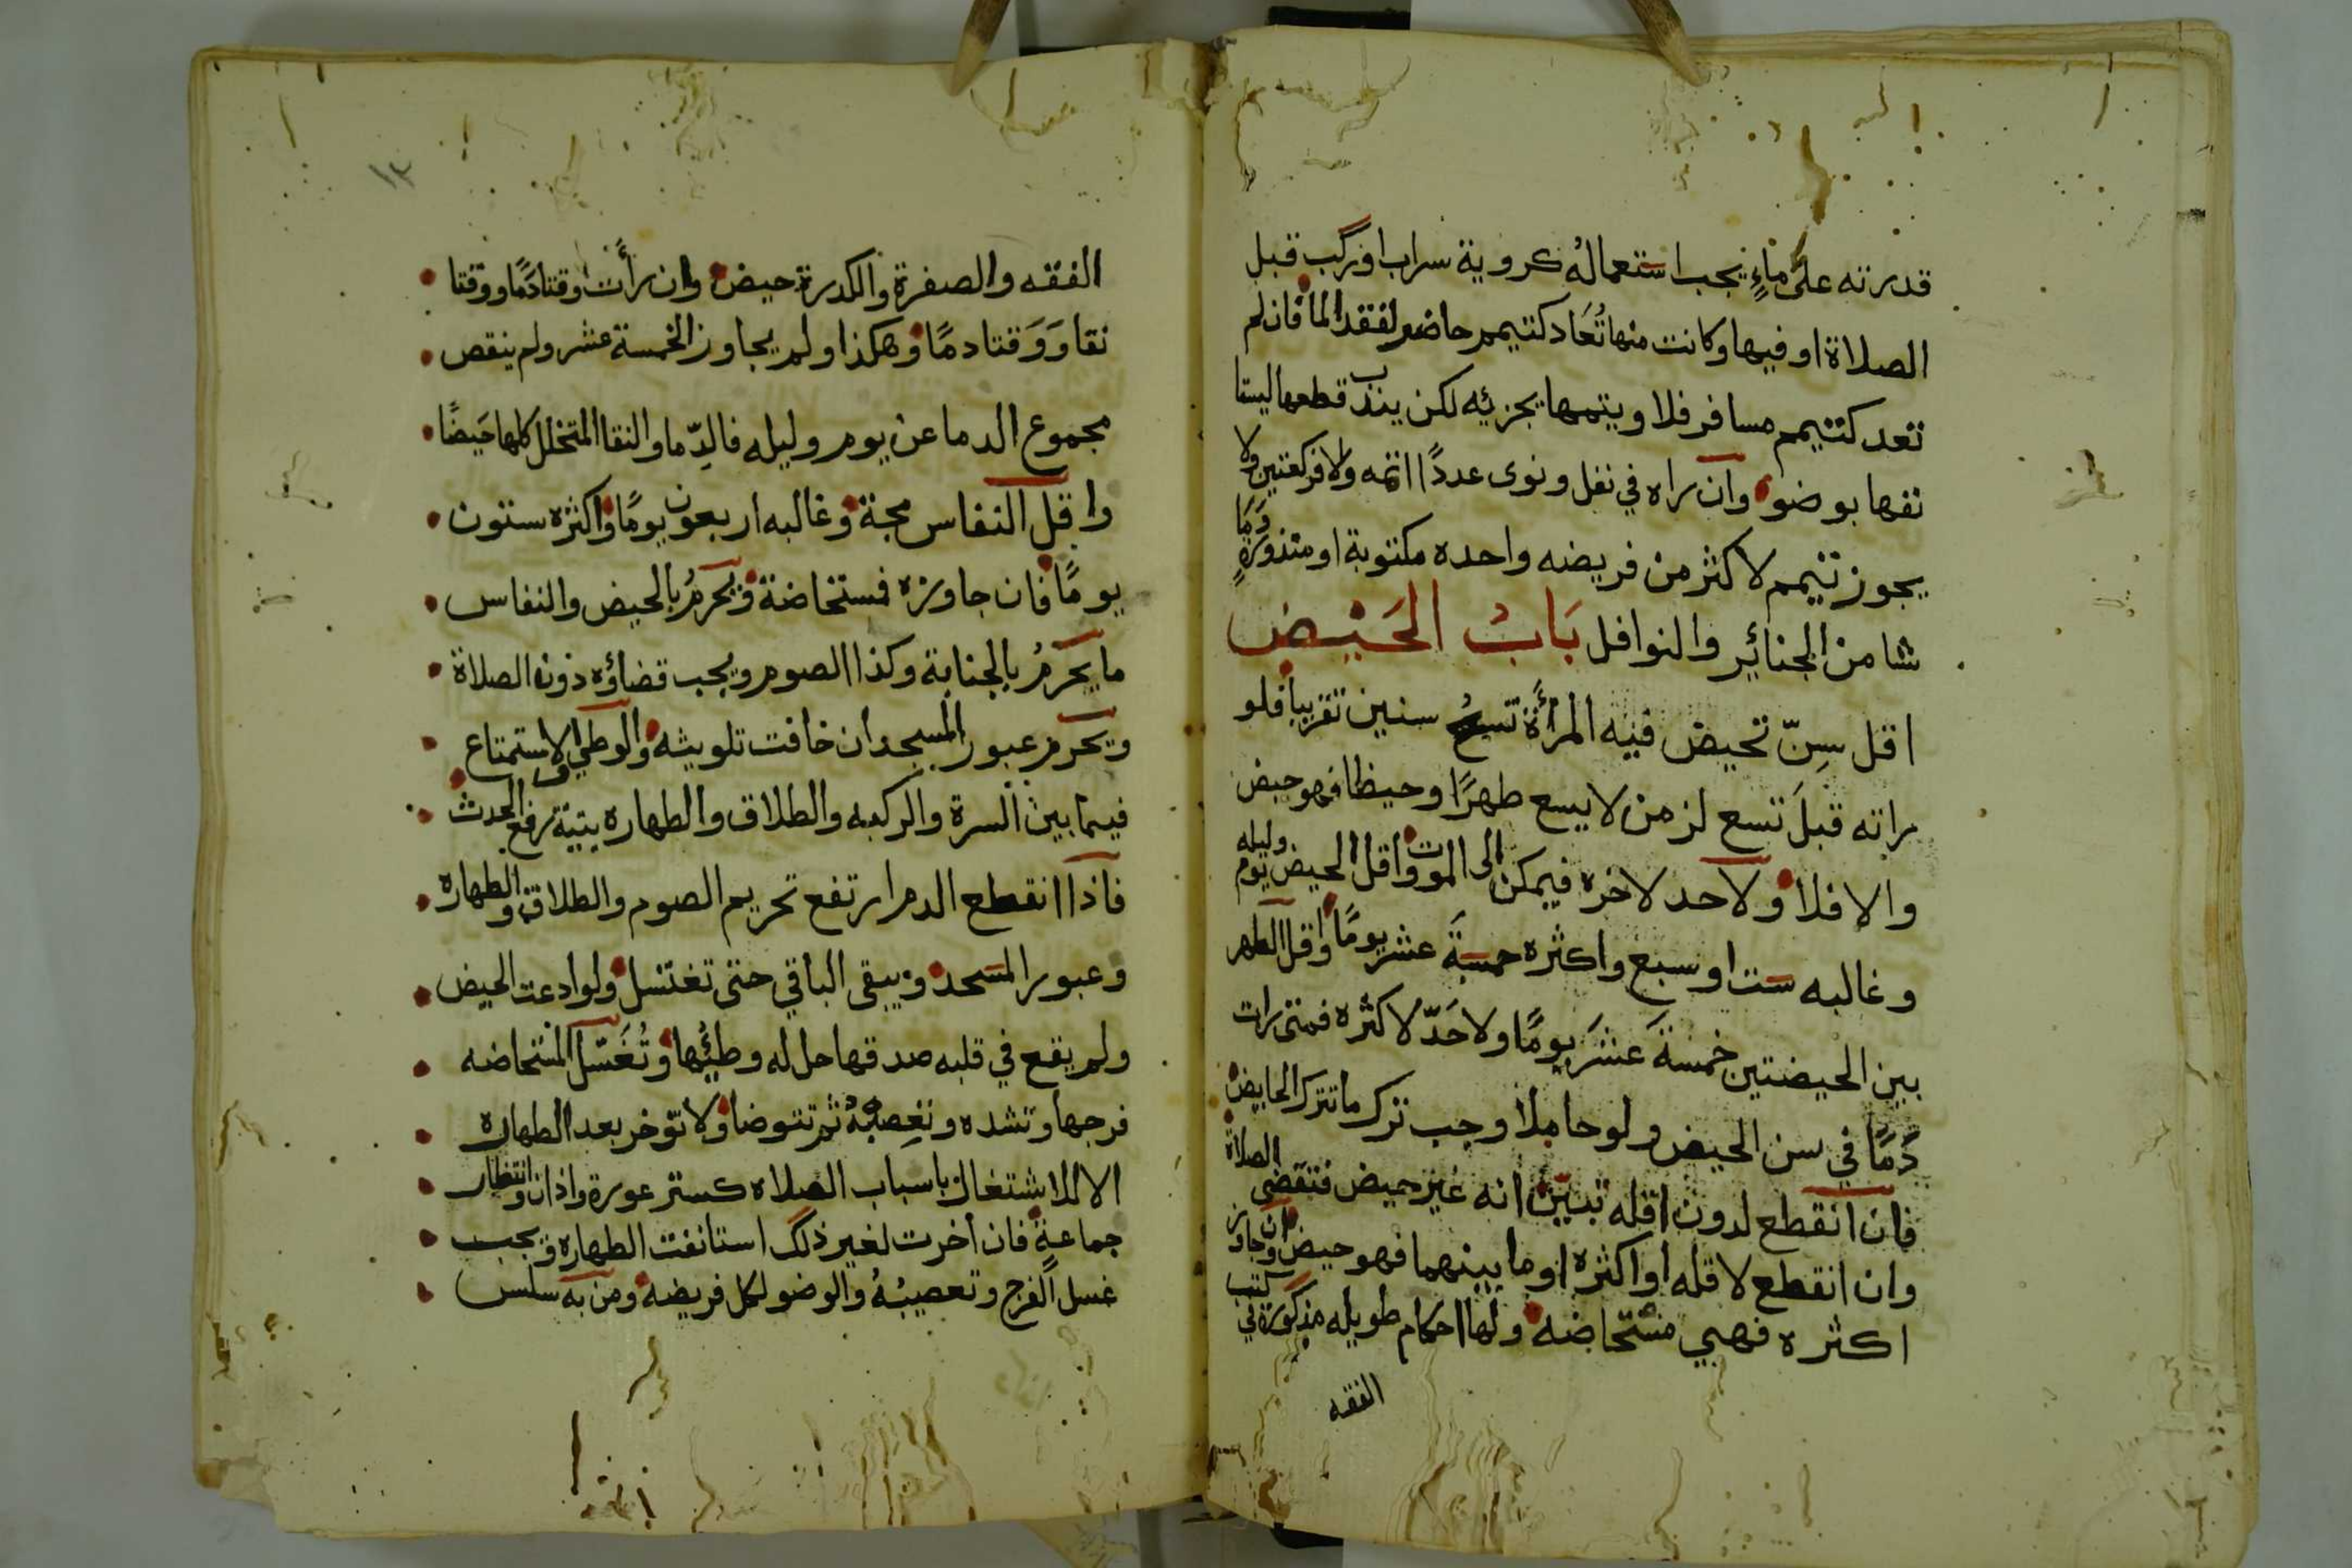 قدرته على ماءٍ يجب استعمالهُ كروية سراب او ركب قبل
الصلاة او فيها وكانت منها تُعَاد كتيمم حاضر لفقد الما فان لم
تعد كتيمم مسافر فلا ويتمها يجزئه لكن يندب قطعها ليستا
نفها بوضو وان راه في نفل ونوى عددًا اتمه ولا فركعتين ولا
يجوز تيمم لاكثر من فريضه واحده مكتوبة او منذورةٍ وَمَا
شا من الجنائير والنوافل بَابُ الحَيْض
اقل سِنّ تحيض فيه المرأة تسع سنين تقريبا فلو
راته قبلَ تسع لزمن لا يسع طهرًا وحيظا فهو حيض
والا فلا ولاحد لاخره فيمكن الى الموت واقل الحيض يوم وليله
وغالبه ست او سبع واكثره خمسةَ عشر يومًا واقل الطهر
بين الحيضتين خمسةَ عَشَرَ يومًا ولا حَدّ لاكثره فمتى رات
دًمًا في سن الحيض ولو حاملا وجب ترك ما تترك الحايض
فان انقطع لدون اقله تبيّن انه غير حيض فتقضى الصلاة
وان انقطع لاقله او اكثره او ما بينهما فهو حيض وان جاوز
اكثره فهي مستحاضه ولها احكام طويله مذكورة في كتب
الفقه
١٣
الفقه والصفرة والكدرة حيض وان رأت وقتا دَمًا ووقتا
نقا وَوَقتا دمًا وهكذا ولم يجاوز الخمسة عشر ولم ينقص
مجموع الدما عن يوم وليله فالدِّما والنقا المتخلل كلها حَيضًا
واقل النفاس مجة وغالبه اربعون يومًا واكثره ستون
يومًا فان جاوزه فستخاضة ويحرمُ بالحيض والنفاس
ما يحرمُ بالجنابة وكذا الصوم ويجب قضاؤه دون الصلاة
ويحرم عبور المسجد ان خافت تلويثه والوطي والاستمتاع
فيما بين السرة والركبه والطلاق والطهاره بنيّة رفع الحدث
فاذا انقطع الدم ارتفع تحريم الصوم والطلاق والطهاره
وعبور المسحد ويبقى الباقي حتى تغتسل ولو ادعت الحيض
ولم يقع في قلبه صدقها حل له وطئها وتُغَسّل المستحاضه
فرجها وتشده وتعصبهُ ثم تتوضا ولا تؤخر بعد الطهاره
الا للاشتغال باسباب الصلاه كستر عورة واذان وانتظار
جماعةٍ فان أخرت لغير ذلك استانفت الطهاره ويجب
غسل الفرج وتعصيبُهُ والوضو لكل فريضه ومن به سلس